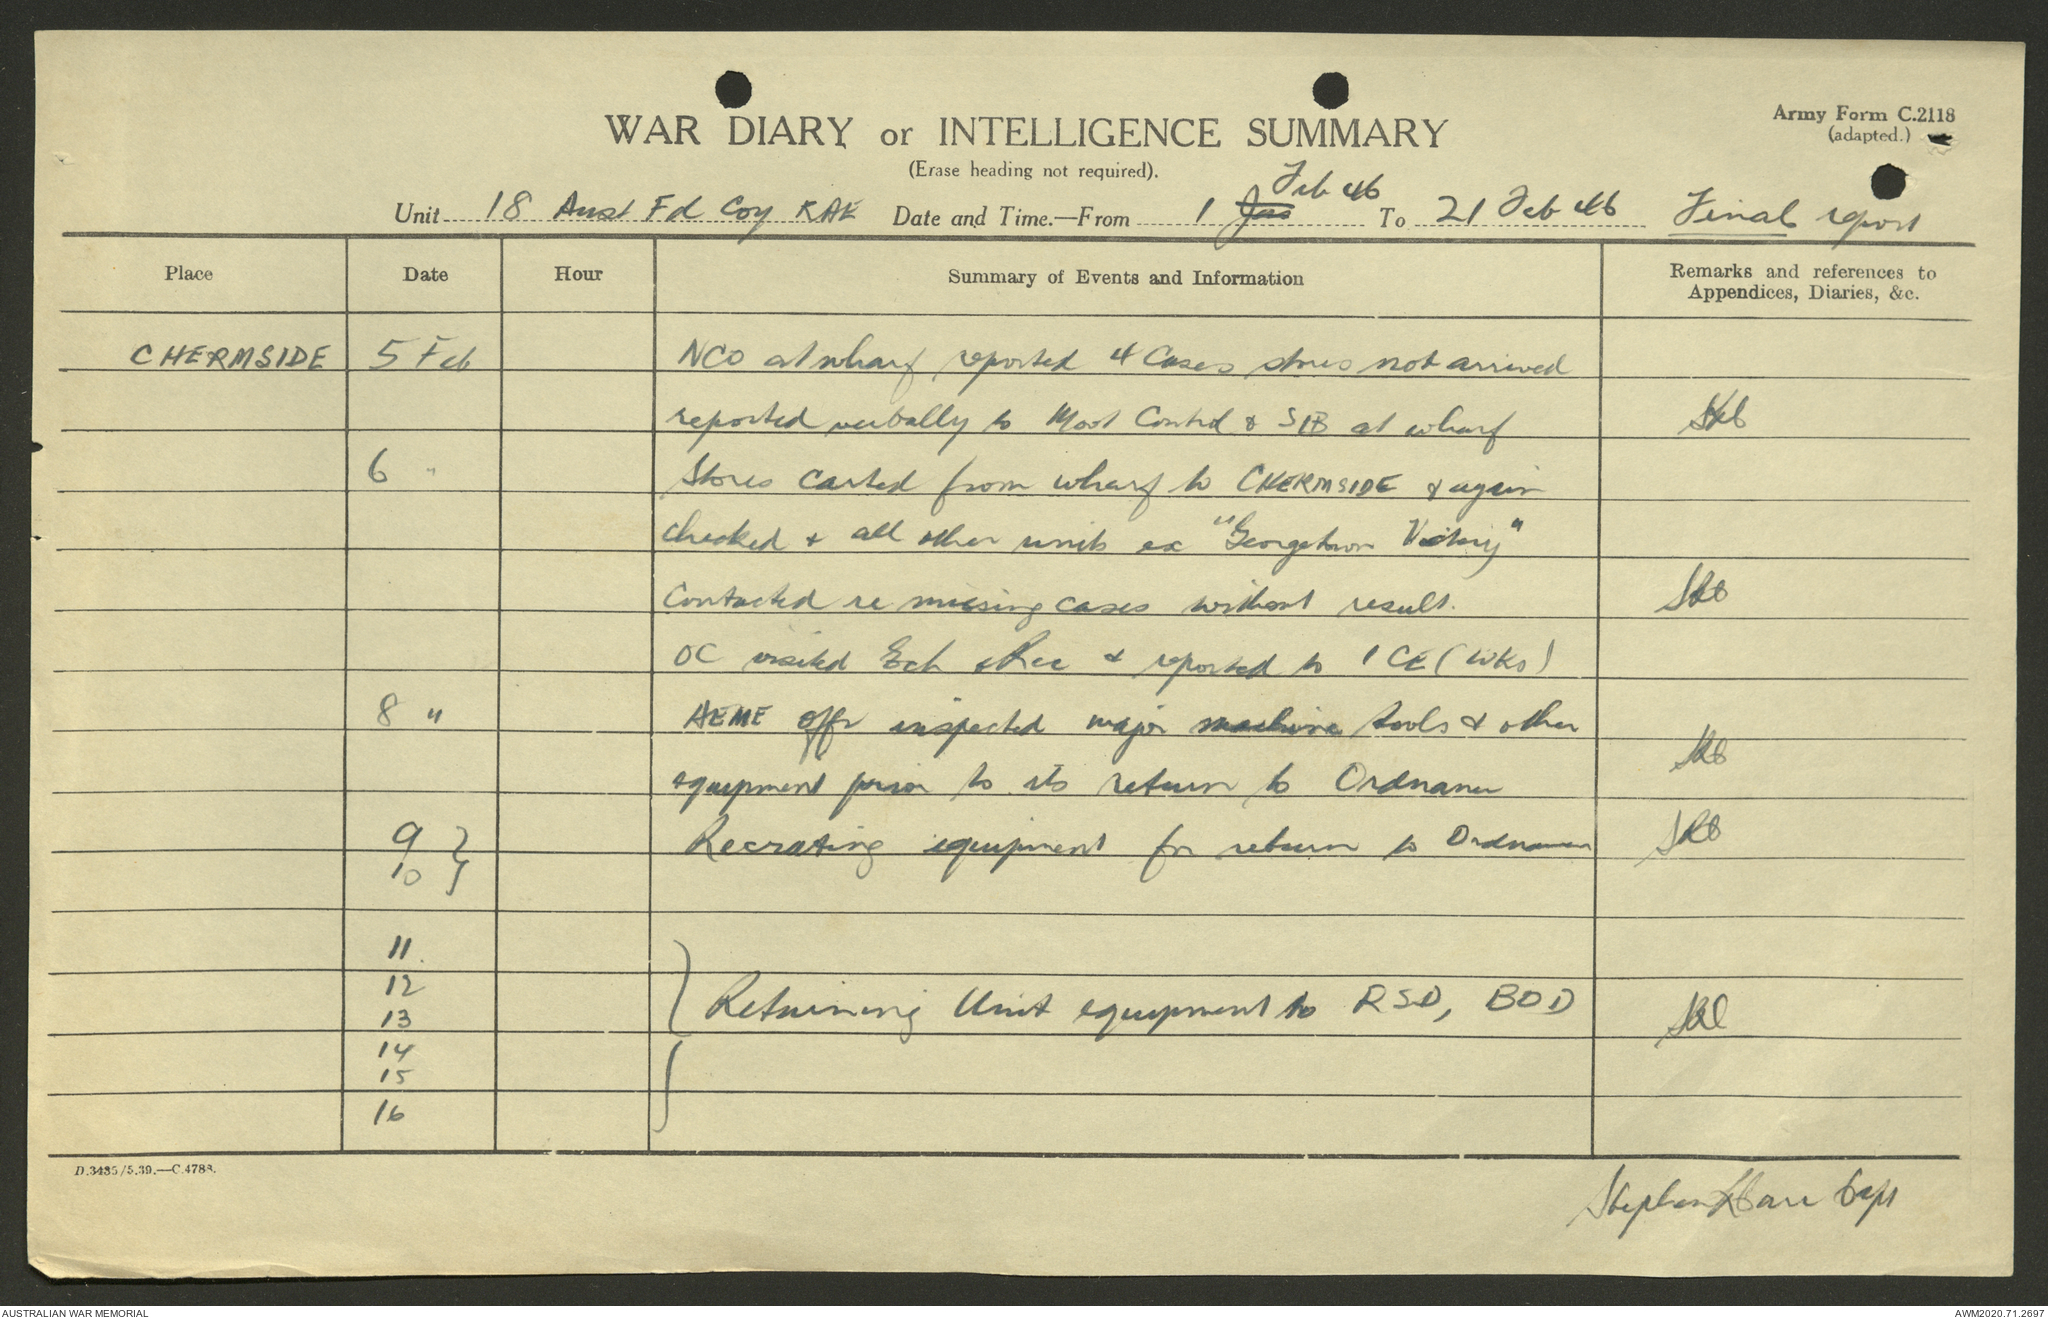 Army Form C.2118
(adapted.)
WAR DIARY or INTELLIGENCE SUMMARY
(Erase heading not required).
Unit 18 Aust Fd Coy RAE Date and Time.—From 1 Jan Feb 46 To 21 Feb 46 Final report
Place Date Hour Summary of Events and Information Remarks and references to
Appendices, Diaries, &c.
CHERMSIDE 5 Feb NCO at wharf reported 4 Cases stores not arrived
reported verbally to Movt Control & SIB at wharf
6 " Stores carted from wharf to CHERMSIDE & again
checked & all other units ex "Georgetown Victory"
Contacted re missing cases without result.
OC visited Ech office & reported to 1 CE (Wks)
8 " AEME offr inspected major machine tools & other
equipment prior to its return to Ordnance
9 } Recrating equipment for return to Ordnance
10 }
11.
12
13 } Returning Unit equipment to RSD, BOD
14
15
16
D.3435/5.39.—C.4788.
Stephen Capt
AUSTRALIAN WAR MEMORIAL
AWM2020.71.2697